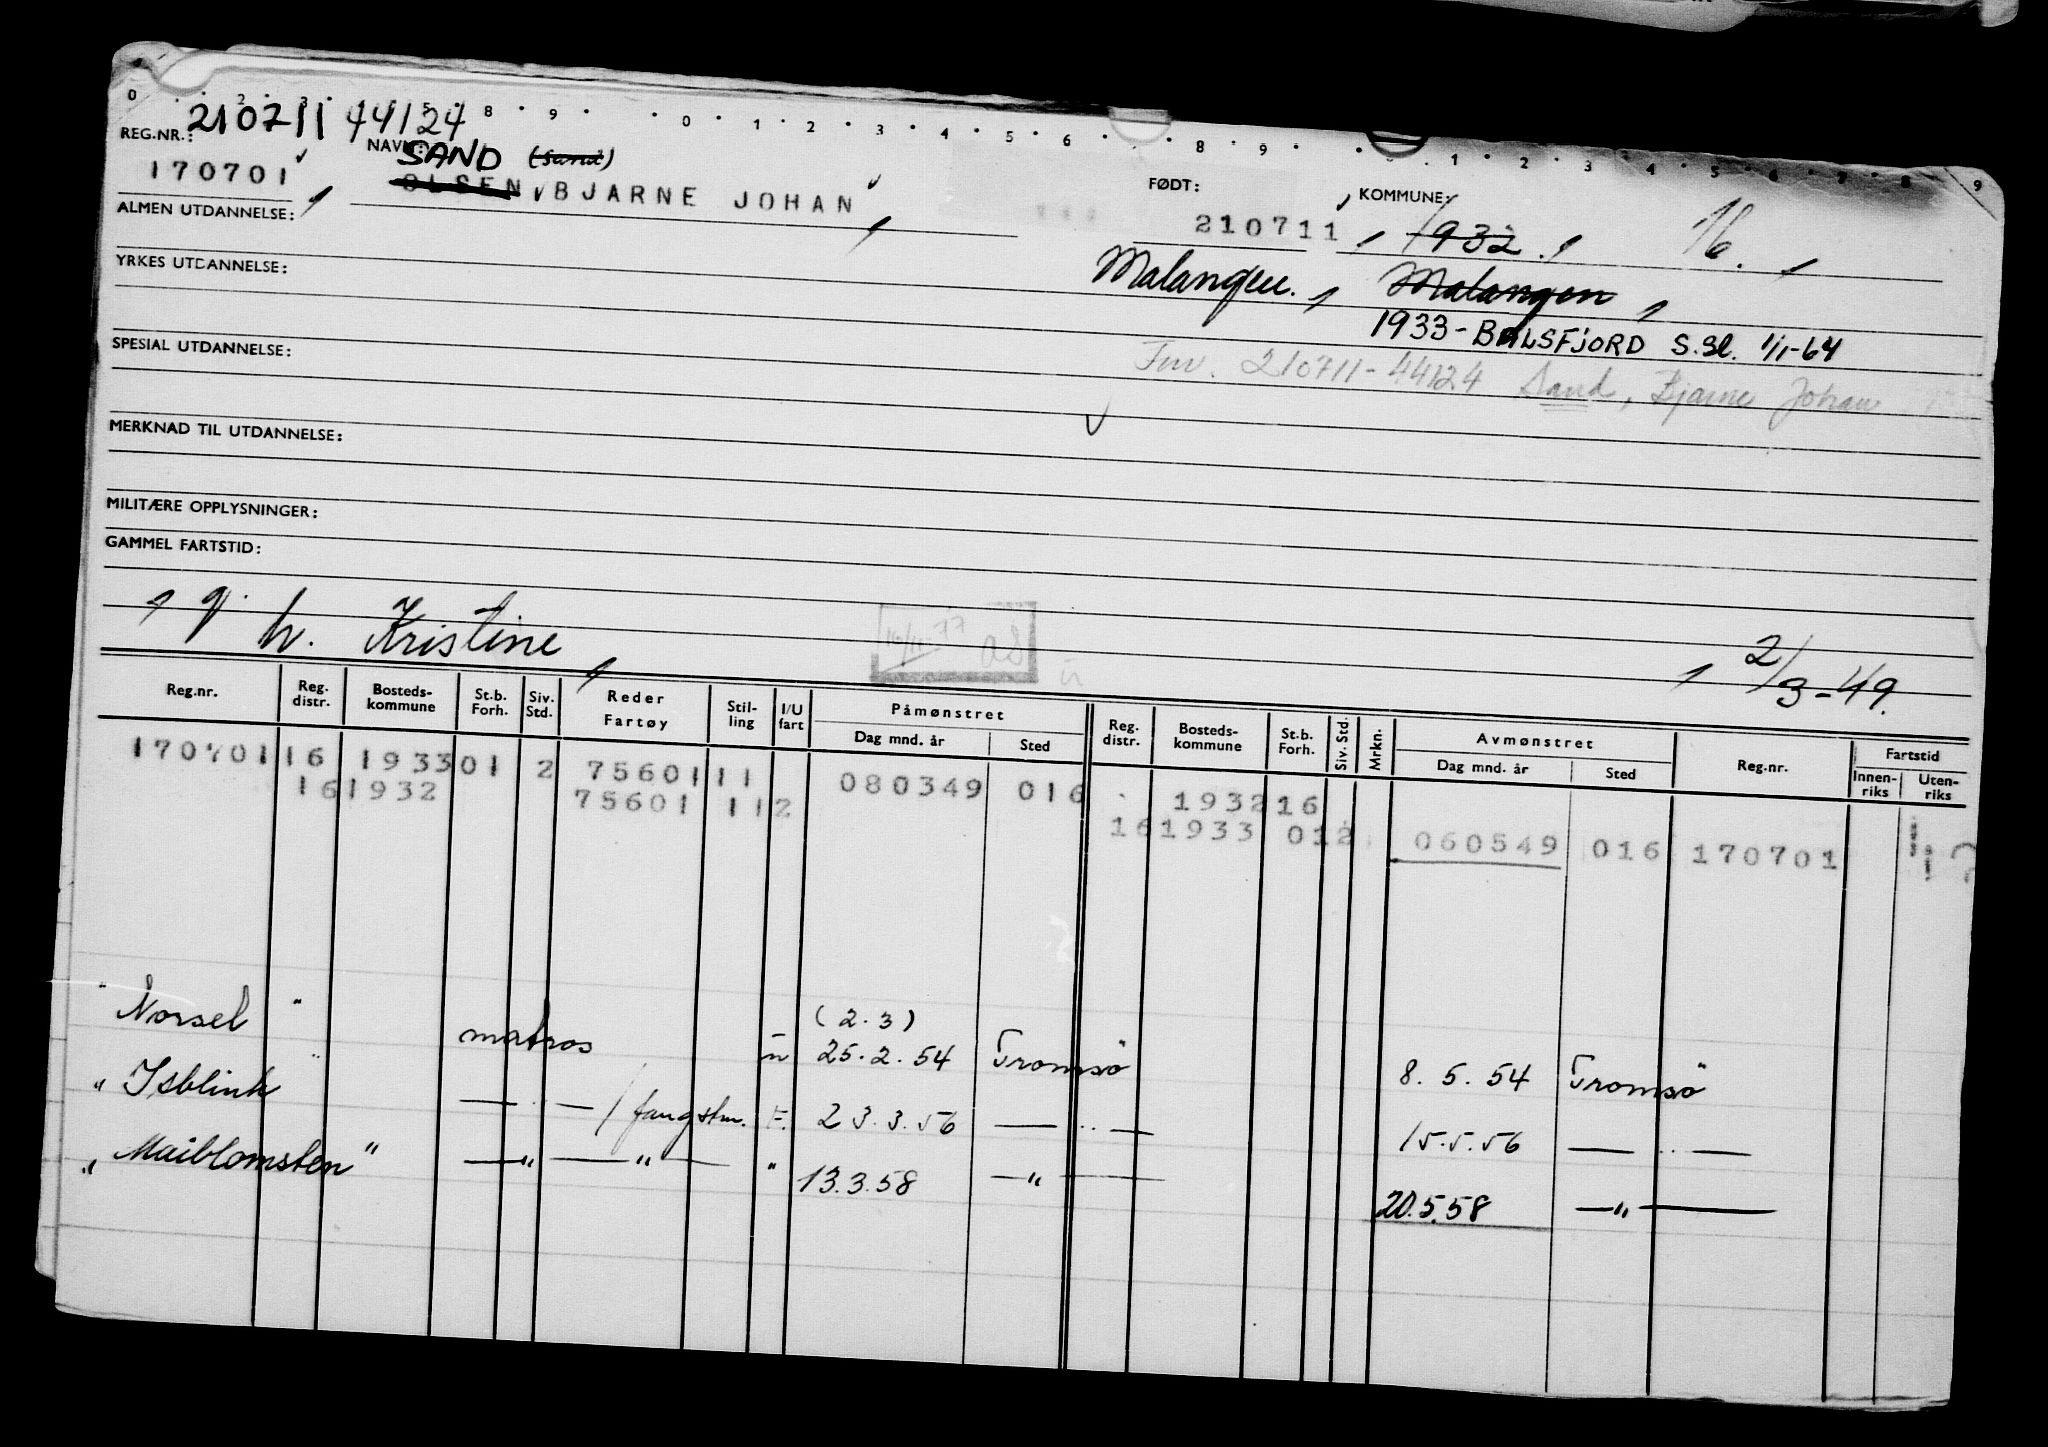 0 . . 2 . 3 . . 5 . 8 . 9 . . 0 . 1 . 2 . 3 . 4 . 5 . 6 . . 8 . 9 . . . . 1 . 2 . 3 . 4 . 5 . 6 . 7 . 8 . 9
210711 44124
REG.NR.: NAVN: FØDT: KOMMUNE:
SAND (Sand)
170701 OLSEN, BJARNE JOHAN 210711 1932. 16.
ALMEN UTDANNELSE:
Malangen. Malangen
YRKES UTDANNELSE:
1933 - BALSFJORD S.Bl. 1/1-64
SPESIAL UTDANNELSE:
Inv. 210711-44124 Sand, Bjarne Johan
MERKNAD TIL UTDANNELSE:
MILITÆRE OPPLYSNINGER:
GAMMEL FARTSTID:
g. h. Kristine, 2/3-49.
Reg.nr. Reg. distr. Bosteds-kommune St.b. Forh. Siv. Std. Reder Fartøy Stil-ling I/U fart Påmønstret Dag mnd. år Sted Reg. distr. Bosteds-kommune St.b. Forh. Siv. Std. Mrkn. Avmønstret Dag mnd. år Sted Reg.nr. Fartstid Innen-riks Uten-riks
170701 16 1933 01 2 75601 11 080349 016 1932 16
16 1932 75601 11 2 16 1933 01 2 060549 016 170701
"Norsel" matros u (2.3) 25.2.54 Tromsø 8.5.54 Tromsø
"Isblink" — " — / fangstm. F. 23.3.56 — " — 15.5.56 — " —
"Maiblomsten" — " — " — " 13.3.58 — " — 20.5.58 — " —